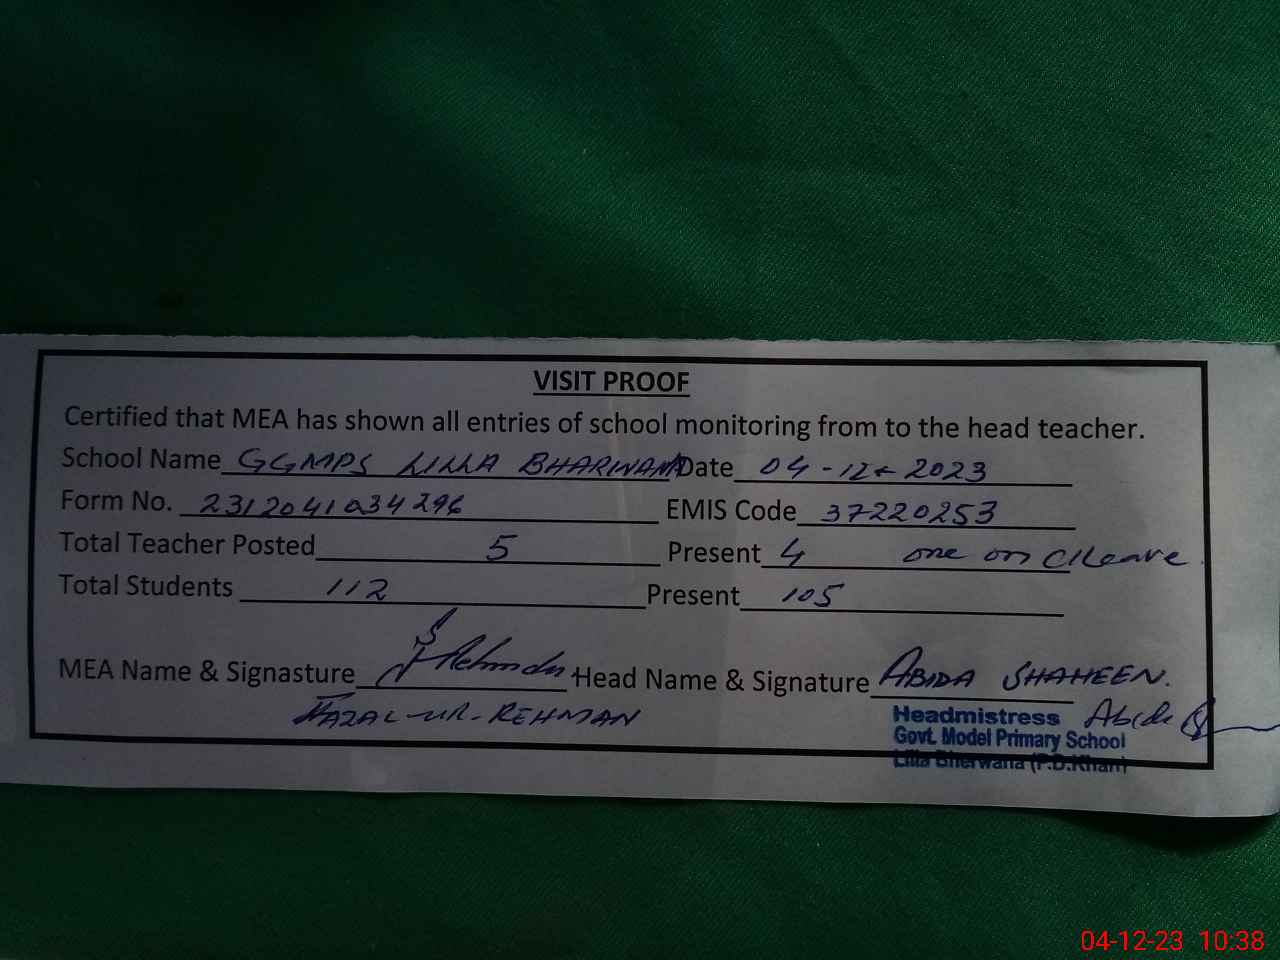 VISIT PROOF
Certified that MEA has shown all entries of school monitoring from to the head teacher.
School Name GGMPS LILLA BHARWANA Date 04-12-2023
Form No. 2312041034296 EMIS Code 37220253
Total Teacher Posted 5 Present 4 one on C/Leave
Total Students 112 Present 105
MEA Name & Signasture Rehman Head Name & Signature ABIDA SHAHEEN.
FAZAL-UR-REHMAN Headmistress Abida
Govt. Model Primary School
Lilla Bherwana (P.D.Khan)
04-12-23 10:38